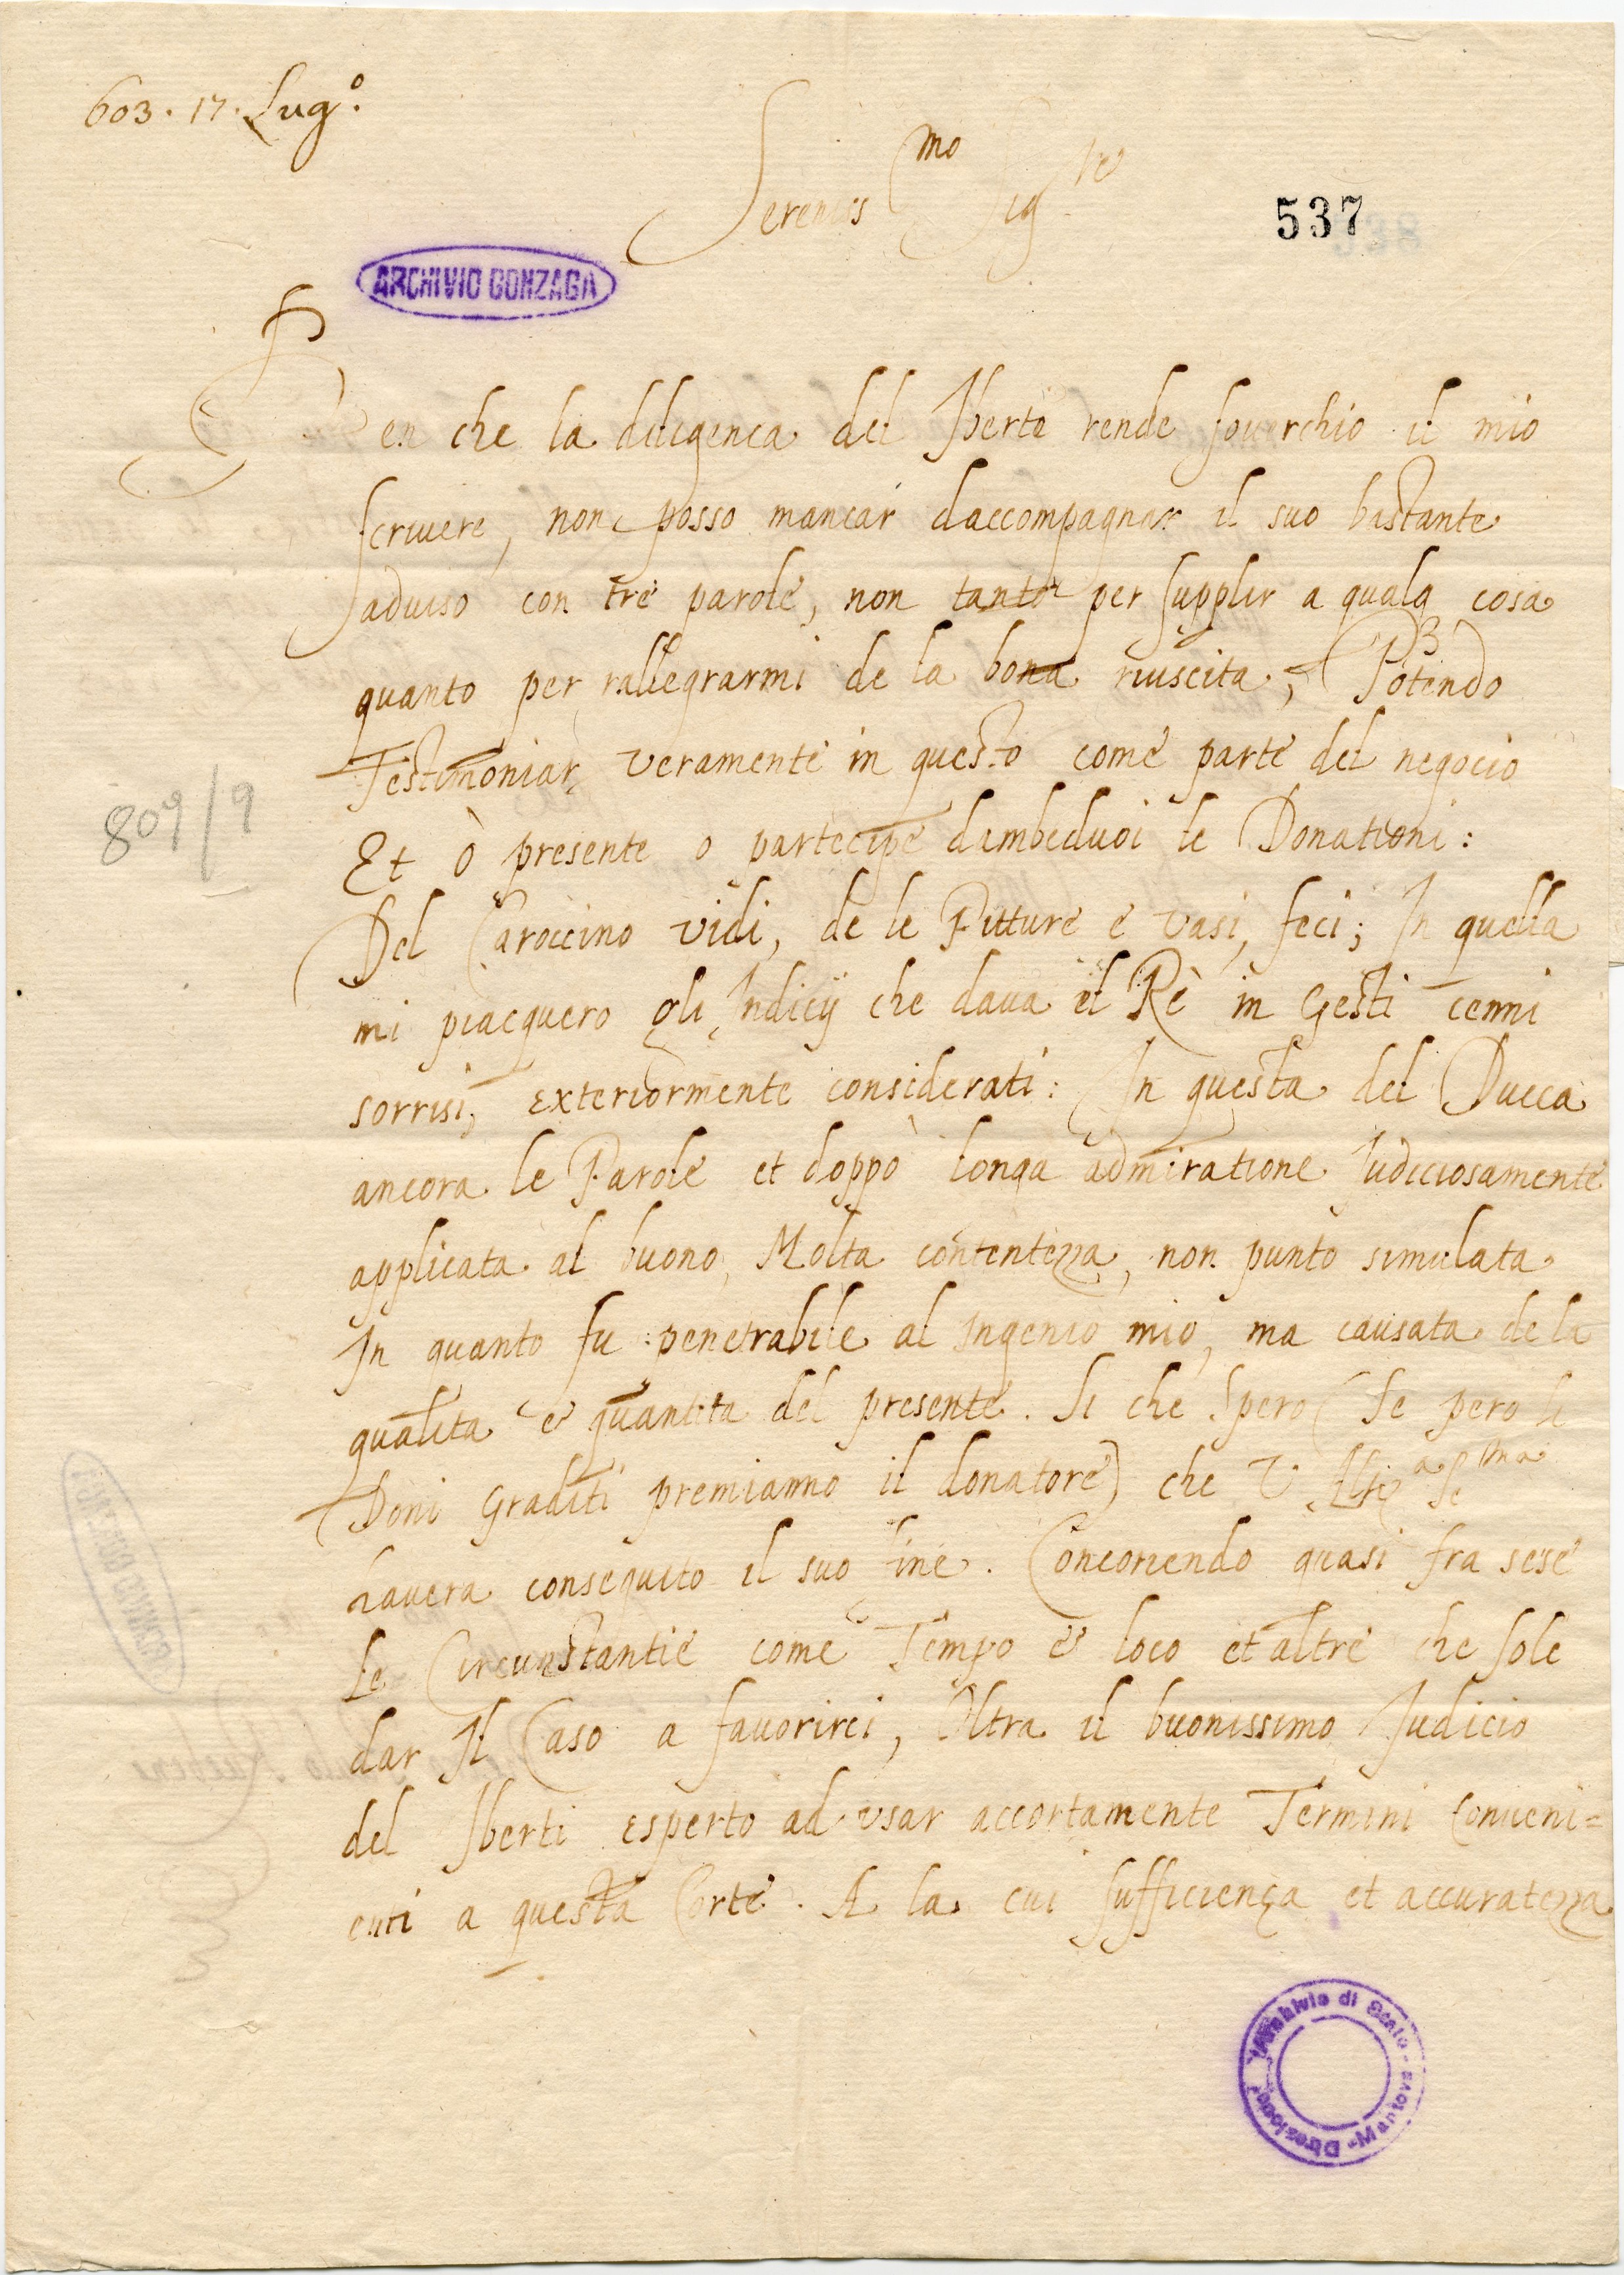 603. 17. Lug.º
Sereniss.mo Sig.re
537
ARCHIVIO GONZAGA
Ben che la diligenca del Iberti rende souerchio il mio
scriuere, non posso mancar daccompagnar il suo bastante
aduiso con tre parole, non tanto per supplir a qualq3 cosa
quanto per rallegrarmi de la bona riuscita, Potendo
Testimoniar veramente in questo come parte del negocio
Et ò presente o partecipe dambeduoi le Donationi:
Del Caroccino vidi, de le Pitture e vasi, feci; In quella
mi piacquero gli Indicij che daua il Rè in Gesti cenni
sorrisi, exteriormente considerati: In questa del Ducca
ancora le Parole et doppò longa admiratione Iudiciosamente
applicata al buono, Molta contentezza, non punto simulata
In quanto fu penetrabile al Ingenio mio, ma causata de la
qualita e quantita del presente. Si che spero (se pero li
Doni Graditi premianno il donatore) che V. Altza Sema
hauera conseguito il suo fine. Concorrendo quasi fra sese
Le Circunstantie come Tempo e loco et altre che sole
dar Il Caso a fauorirci, Oltra il buonissimo Iudicio
del Iberti esperto ad vsar accortamente Termini Conueni=
enti a questa Corte. A la cui sufficiença et accuratezza
809/9
Archivio di Stato - Mantova - Direzione